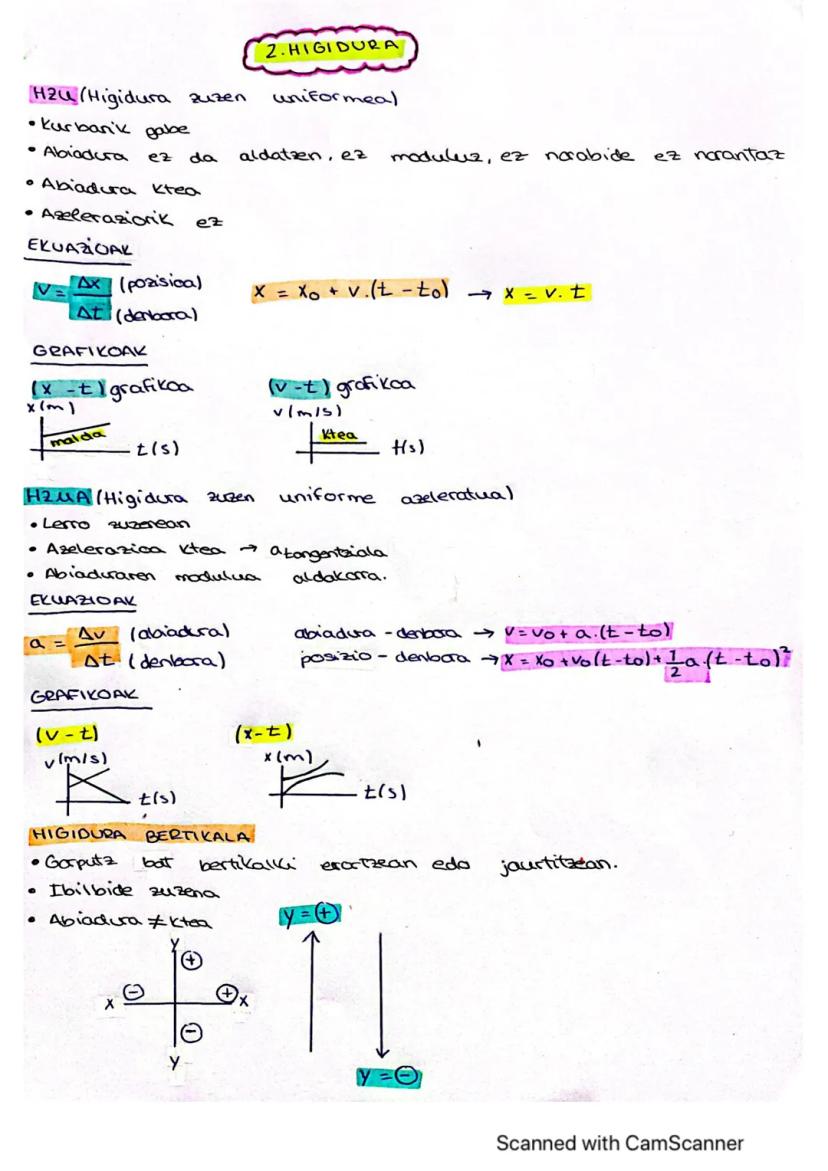 2. HIGIDURA
HZU (Higidura zuzen uniformea)
• Kurbarik gabe
• Abiadura ez da aldatzen, ez moduluz, ez norabide ez norantaz
• Abiadura Ktea
• Azelerazìorik ez
EKUAZIOAK
V = Δx / Δt (pozisioa) (denbora) x = x₀ + v.(t - t₀) → x = v. t
GRAFIKOAK
(x - t) grafikoa (v - t) grafikoa
x(m) v(m/s)
malda t(s) Ktea t(s)
HZUA (Higidura zuzen uniforme azeleratua)
• Lerro zuzenean
• Azelerazioa Ktea → a tangentziala
• Abiaduraren modulua aldakorra.
EKUAZIOAK
a = Δv / Δt (abiadura) (denbora)
abiadura - denbora → v = v₀ + a.(t - t₀)
posizio - denbora → x = x₀ + v₀(t - t₀) + 1/2 a.(t - t₀)²
GRAFIKOAK
(v - t) (x - t)
v(m/s) x(m)
t(s) t(s)
HIGIDURA BERTIKALA
• Gorputz bat bertikalki erortzean edo jaurtitzean.
• Ibilbide zuzena
• Abiadura ≠ Ktea
y = +
y
+
x - + x
-
y
y = -
Scanned with CamScanner